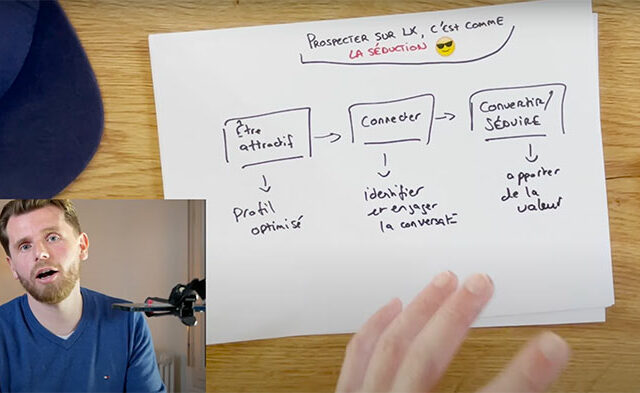 PROSPECTER SUR LK, C'EST COMME
LA SÉDUCTION 😎
Être
attractif
Connecter
CONVERTIR/
SÉDUIRE
profil
optimisé
identifier
et engager
la conversat°
apporter
de la
valeur